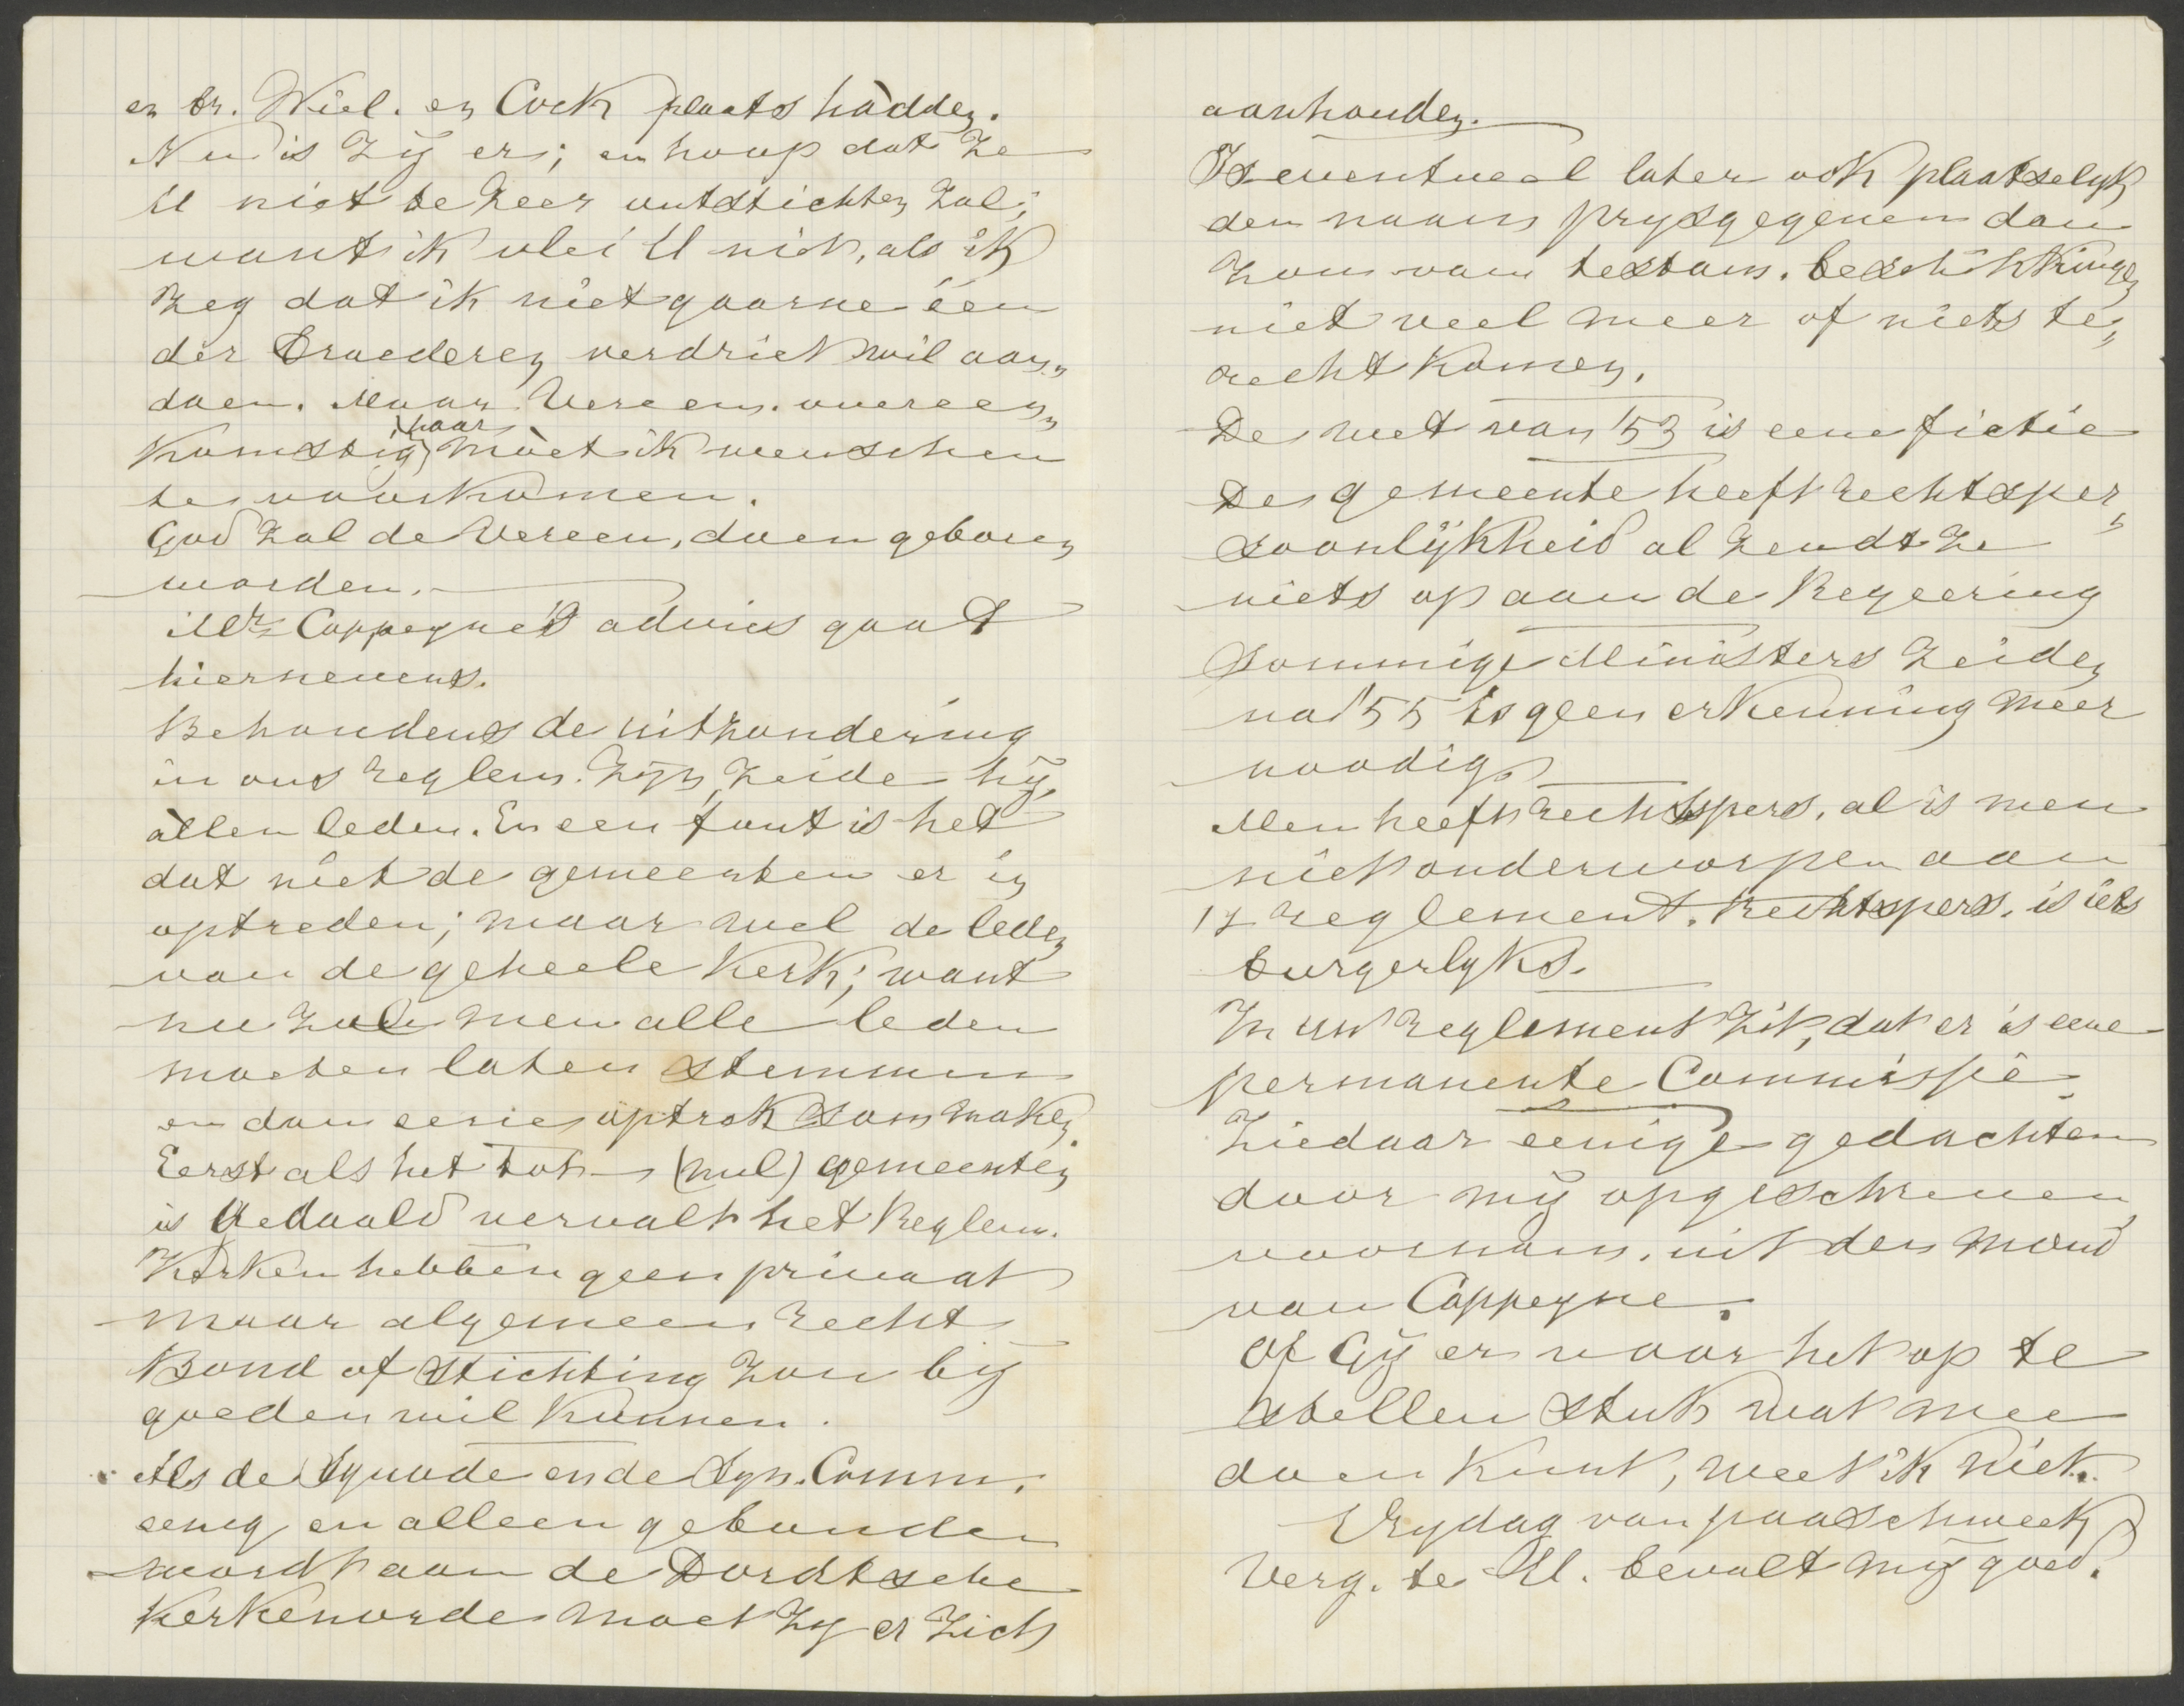 en br. Wiel. en Cock plaats hàdden.
Nu is zij er; en hoop dat ze
U niet te zeer ontstichten zal;
want ik vlei U niet, als ik
zeg dat ik niet gaarne één
der Broederen verdriet wil aan„
doen. Maar Vereen. overeen„
komstig haar moet ik wenschen
te voorkomen.
God zal de Vereen, doen geboren
worden.
Mr. Cappeyne's advies gaat
hiernevens.
Behoudens de uitzondering
in ons reglem. zijn, zeide hij,
àllen leden. En een fout is het
dat niet de gemeenten er in
optreden; maar wel de leden
van de geheele Kerk; want
nu zal men alle leden
moeten laten stemmen
en dan eerie optrek som maken.
Eerst als het tot (nul) gemeenten
is gedaald vervalt het Reglem.
Kerken hebben geen privaat
maar algemeen recht
Bond of stichting zou bij
goeden wil kunnen.
Als de Synode en de Syn. Comm.
eenig en alleen gebonden
wordt aan de Dordtsche
Kerkenorde moet zij er zich
aanhouden.
Is eventueel later ook plaatselyk
den naam prysgegeven dan
zou van testam. beschikkingen
niet veel meer of niets te„
recht komen.
De wet van '53 is eene fictie
De gemeente heeft rechtsper„
soonlijkheid al zendt ze
niets op aan de Regeering
Sommige Ministers zeiden
na '55 is geen erkenning meer
noodig.
Men heeft rechtspers. al is men
niet onderworpen aan
1 reglement. Rechtspers. is iets
burgerlyks.
In uw reglement zit, dat er is eene
permanente Commissie
Ziedaar eenige gedachten
door mij opgeschreven
voornam. uit den mond
van Cappeyne.
Of Gij er voor het op te
stellen stuk wat mee
doen kunt, weet ik niet.
Vrydag van paaschweek
Verg. te U. bevalt mij goed.